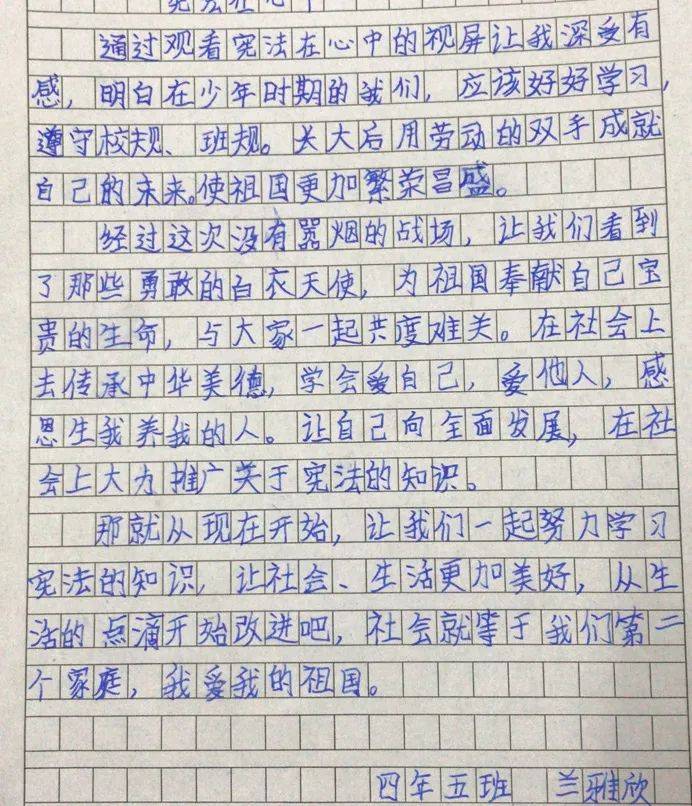 宪法在心中
通过观看宪法在心中的视屏让我深受有
感，明白在少年时期的我们，应该好好学习，
遵守校规、班规。长大后用劳动的双手成就
自己的未来。使祖国更加繁荣昌盛。
经过这次没有嚣烟的战场，让我们看到
了那些勇敢的白衣天使，为祖国奉献自己宝
贵的生命，与大家一起共度难关。在社会上
去传承中华美德，学会爱自己，爱他人，感
恩生我养我的人。让自己向全面发展，在社
会上大为推广关于宪法的知识。
那就从现在开始，让我们一起努力学习
宪法的知识，让社会、生活更加美好，从生
活的点滴开始改进吧，社会就等于我们第二
个家庭，我爱我的祖国。
四年五班 兰雅欣